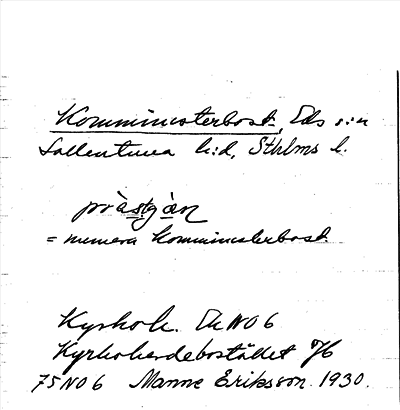 Komministerbost., Eds s:n
Sollentuna h:d, Sthlms l.
prästgàn
= numera komministerbost.
Kyrkoh. Ek NO 6
Kyrkoherdebostället 7/6
75 NO 6 Manne Eriksson 1930.